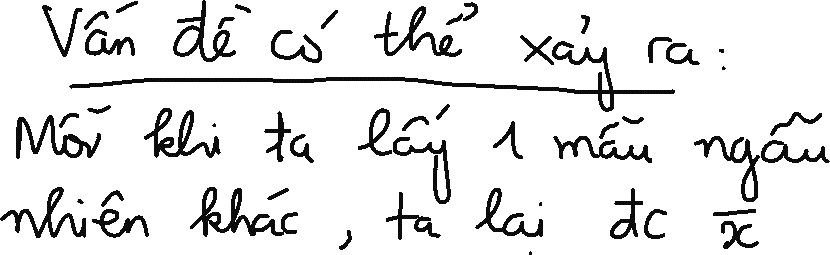 Vấn đề có thể xảy ra:
Mỗi khi ta lấy 1 mẫu ngẫu
nhiên khác, ta lại đc x̅